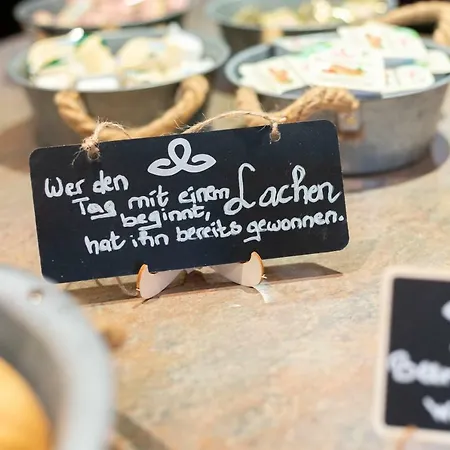 Wer den
Tag mit einem Lachen
beginnt,
hat ihn bereits gewonnen.